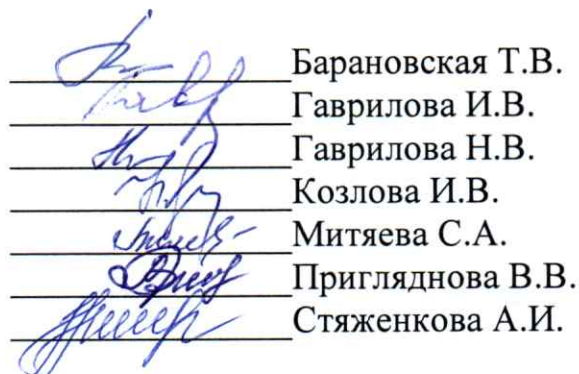 Барановская Т.В.
Гаврилова И.В.
Гаврилова Н.В.
Козлова И.В.
Митяева С.А.
Пригляднова В.В.
Стяженкова А.И.